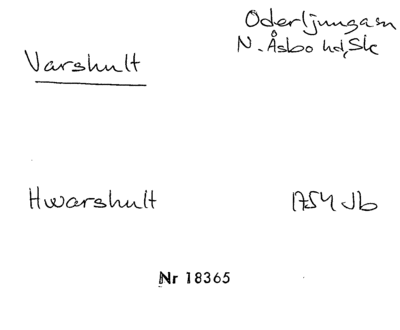 Oderljungasn
N. Åsbo hd, Sk
Varshult
Hwarshult 1754 Jb
Nr 18365